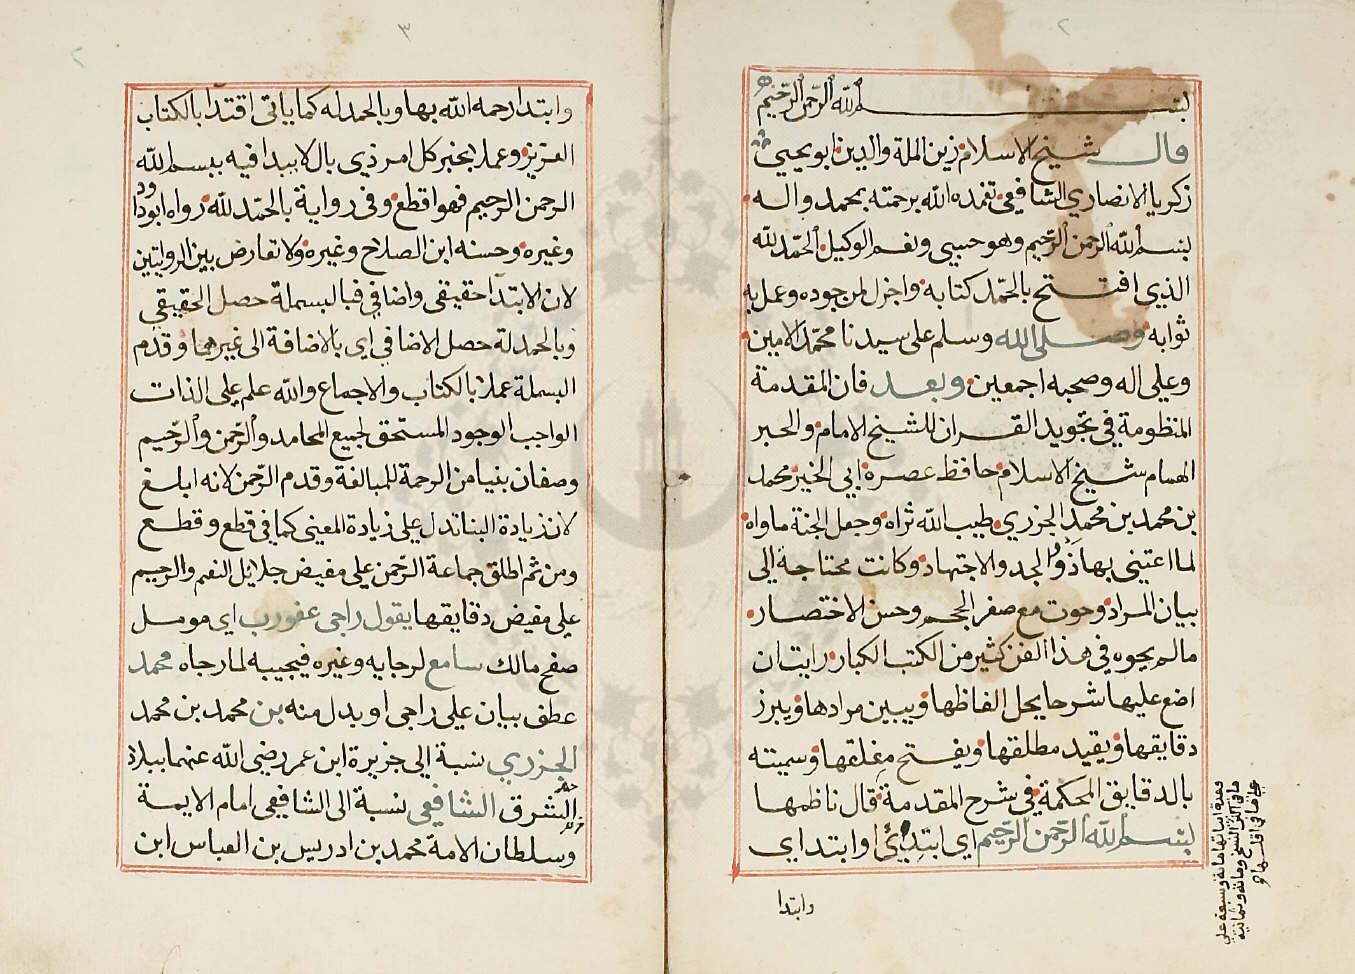 ٢
بسم الله الرحمن الرحيم
قال شيخ الاسلام زين الملة والدين ابو يحيى
زكريا الانصاري الشافعي تغمده الله برحمته بمحمد واله
بسم الله الرحمن الرحيم وهو حسبي ونعم الوكيل الحمد لله
الذي افتتح بالحمد كتابه واجزل لمن جوده وعمل به
ثوابه وصلى الله وسلم على سيدنا محمد الامين
وعلى اله وصحبه اجمعين وبعد فان المقدمة
المنظومة في تجويد القران للشيخ الامام والحبر
الهمام شيخ الاسلام حافظ عصره ابي الخير محمد
بن محمد بن محمد الجزري طيب الله ثراه وجعل الجنة ماواه
لما اعتنى بها ذوو الجد والاجتهاد وكانت محتاجة الى
بيان المراد وحوت مع صغر الحجم وحسن الاختصار
مالم يحوه في هذا الفن كثير من الكتب الكبار رايت ان
اضع عليها شرحا يحل الفاظها ويبين مرادها ويبرز
دقايقها ويقيد مطلقها ويفتح مغلقها وسميته
بالدقايق المحكمة في شرح المقدمة قال ناظمها
بسم الله الرحمن الرحيم اي ابتدئ او ابتداي
وابتدا
وعدة ابياتها ماية وسبعة على
ما في اكثر النسخ وماية وثمانية
على ما في اقلها
٣
٢
وابتدا رحمه الله بها وبالحمد له كما ياتي اقتدا بالكتاب
العزيز وعملا بخبر كل امر ذي بال لا يبدا فيه ببسم الله
الرحمن الرحيم فهو اقطع وفي رواية بالحمد لله رواه ابو داود
وغيره وحسنه ابن الصلاح وغيره ولا تعارض بين الروايتين
لان الابتدا حقيقي واضافي فبالبسملة حصل الحقيقي
وبالحمدلة حصل الاضافي اي بالاضافة الى غيرهما وقدم
البسملة عملا بالكتاب والاجماع والله علم على الذات
الواجب الوجود المستحق لجميع المحامد والرحمن والرحيم
وصفان بنيا من الرحمة للمبالغة وقدم الرحمن لانه ابلغ
لان زيادة البنا تدل على زيادة المعنى كما في قطع وقطع
ومن ثم اطلق جماعة الرحمن على مفيض جلايل النعم والرحيم
على مفيض دقايقها يقول راجي عفو رب اي مومل
صفح مالك سامع لرجايه وغيره فيجيبه لما رجاه محمد
عطف بيان على راجي او بدل منه بن محمد بن محمد
الجزري نسبة الى جزيرة ابن عمر رضي الله عنهما ببلاد
الشرق الشافعي نسبة الى الشافعي امام الايمة
وسلطان الامة محمد بن ادريس بن العباس ابن